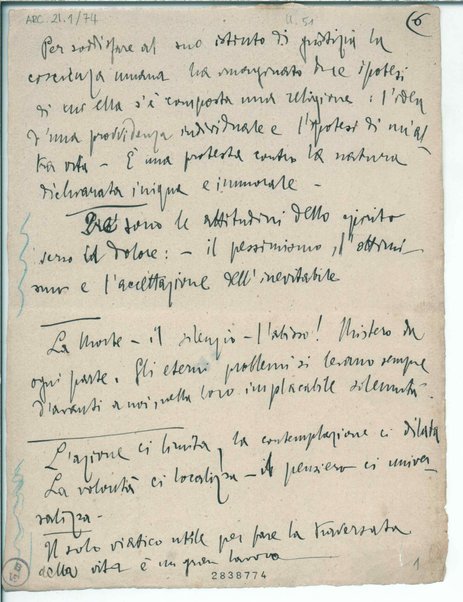 ARC. 21.1/74
U. 51
6
Per soddisfare al suo istinto di giustizia la
coscienza umana ha immaginato due ipotesi
di cui ella s'è composta una religione: l'idea
d'una provvidenza individuale e l'ipotesi di un'al-
tra vita - È una protesta contro la natura
dichiarata iniqua e immorale -
Tre sono le attitudini dello spirito
verso il dolore: - il pessimismo, l'ottimi-
smo e l'accettazione dell'inevitabile
La Morte - il silenzio - l'abisso! Mistero da
ogni parte. Gli eterni problemi si levano sempre
d'avanti a noi, nella loro implacabile solennità.
L'azione ci limita, la contemplazione ci dilata
La volontà ci localizza - il pensiero ci univer-
salizza -
Il solo viatico utile per fare la traversata
della vita è un gran lavoro
2838774
1